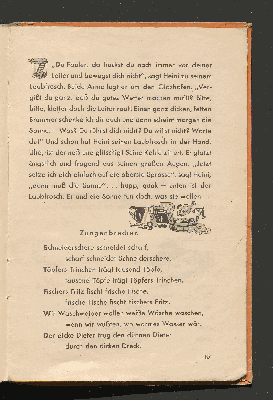 "Du Fauler, da hockst du noch immer vor deiner
Leiter und bewegst dich nicht", sagt Heini zu seinem
Laubfrosch. Beide Arme legt er um den Glashafen. "Ver-
gißt du ganz, daß du gutes Wetter machen mußt? Bitte,
bitte, klettere doch die Leiter rauf. Einen ganz dicken, fetten
Brummer schenke ich dir auch und dann scheint morgen die
Sonne. Was? Du rührst dich nicht? Du willst nicht? Warte
Und schon hat Heini seinen Laubfrosch in der Hand.
ist der naß und glitschig! Seine Kehle zittert. Er glotzt
ängstlich und fragend aus seinen großen Augen. "Jetzt
setze ich dich einfach auf die oberste Sprosse", sagt Heini,
"dann muß die Sonne" ... hupp, quak — unten ist der
Laubfrosch. Er und die Sonne tun doch, was sie wollen.
Zungenbrecher
Schneidersschere schneidet scharf,
scharf schneidet Schneidersschere.
Töpfers Trinchen trägt tausend Töpfe,
tausend Töpfe trägt Töpfers Trinchen.
Fischers Fritz fischt frische Fische,
frische Fische fischt Fischers Fritz.
Wir Waschweiber wollen weiße Wäsche waschen,
wenn wir wüßten, wo warmes Wasser wär.
Der dicke Dieter trug den dünnen Dieter
durch den dicken Dreck.